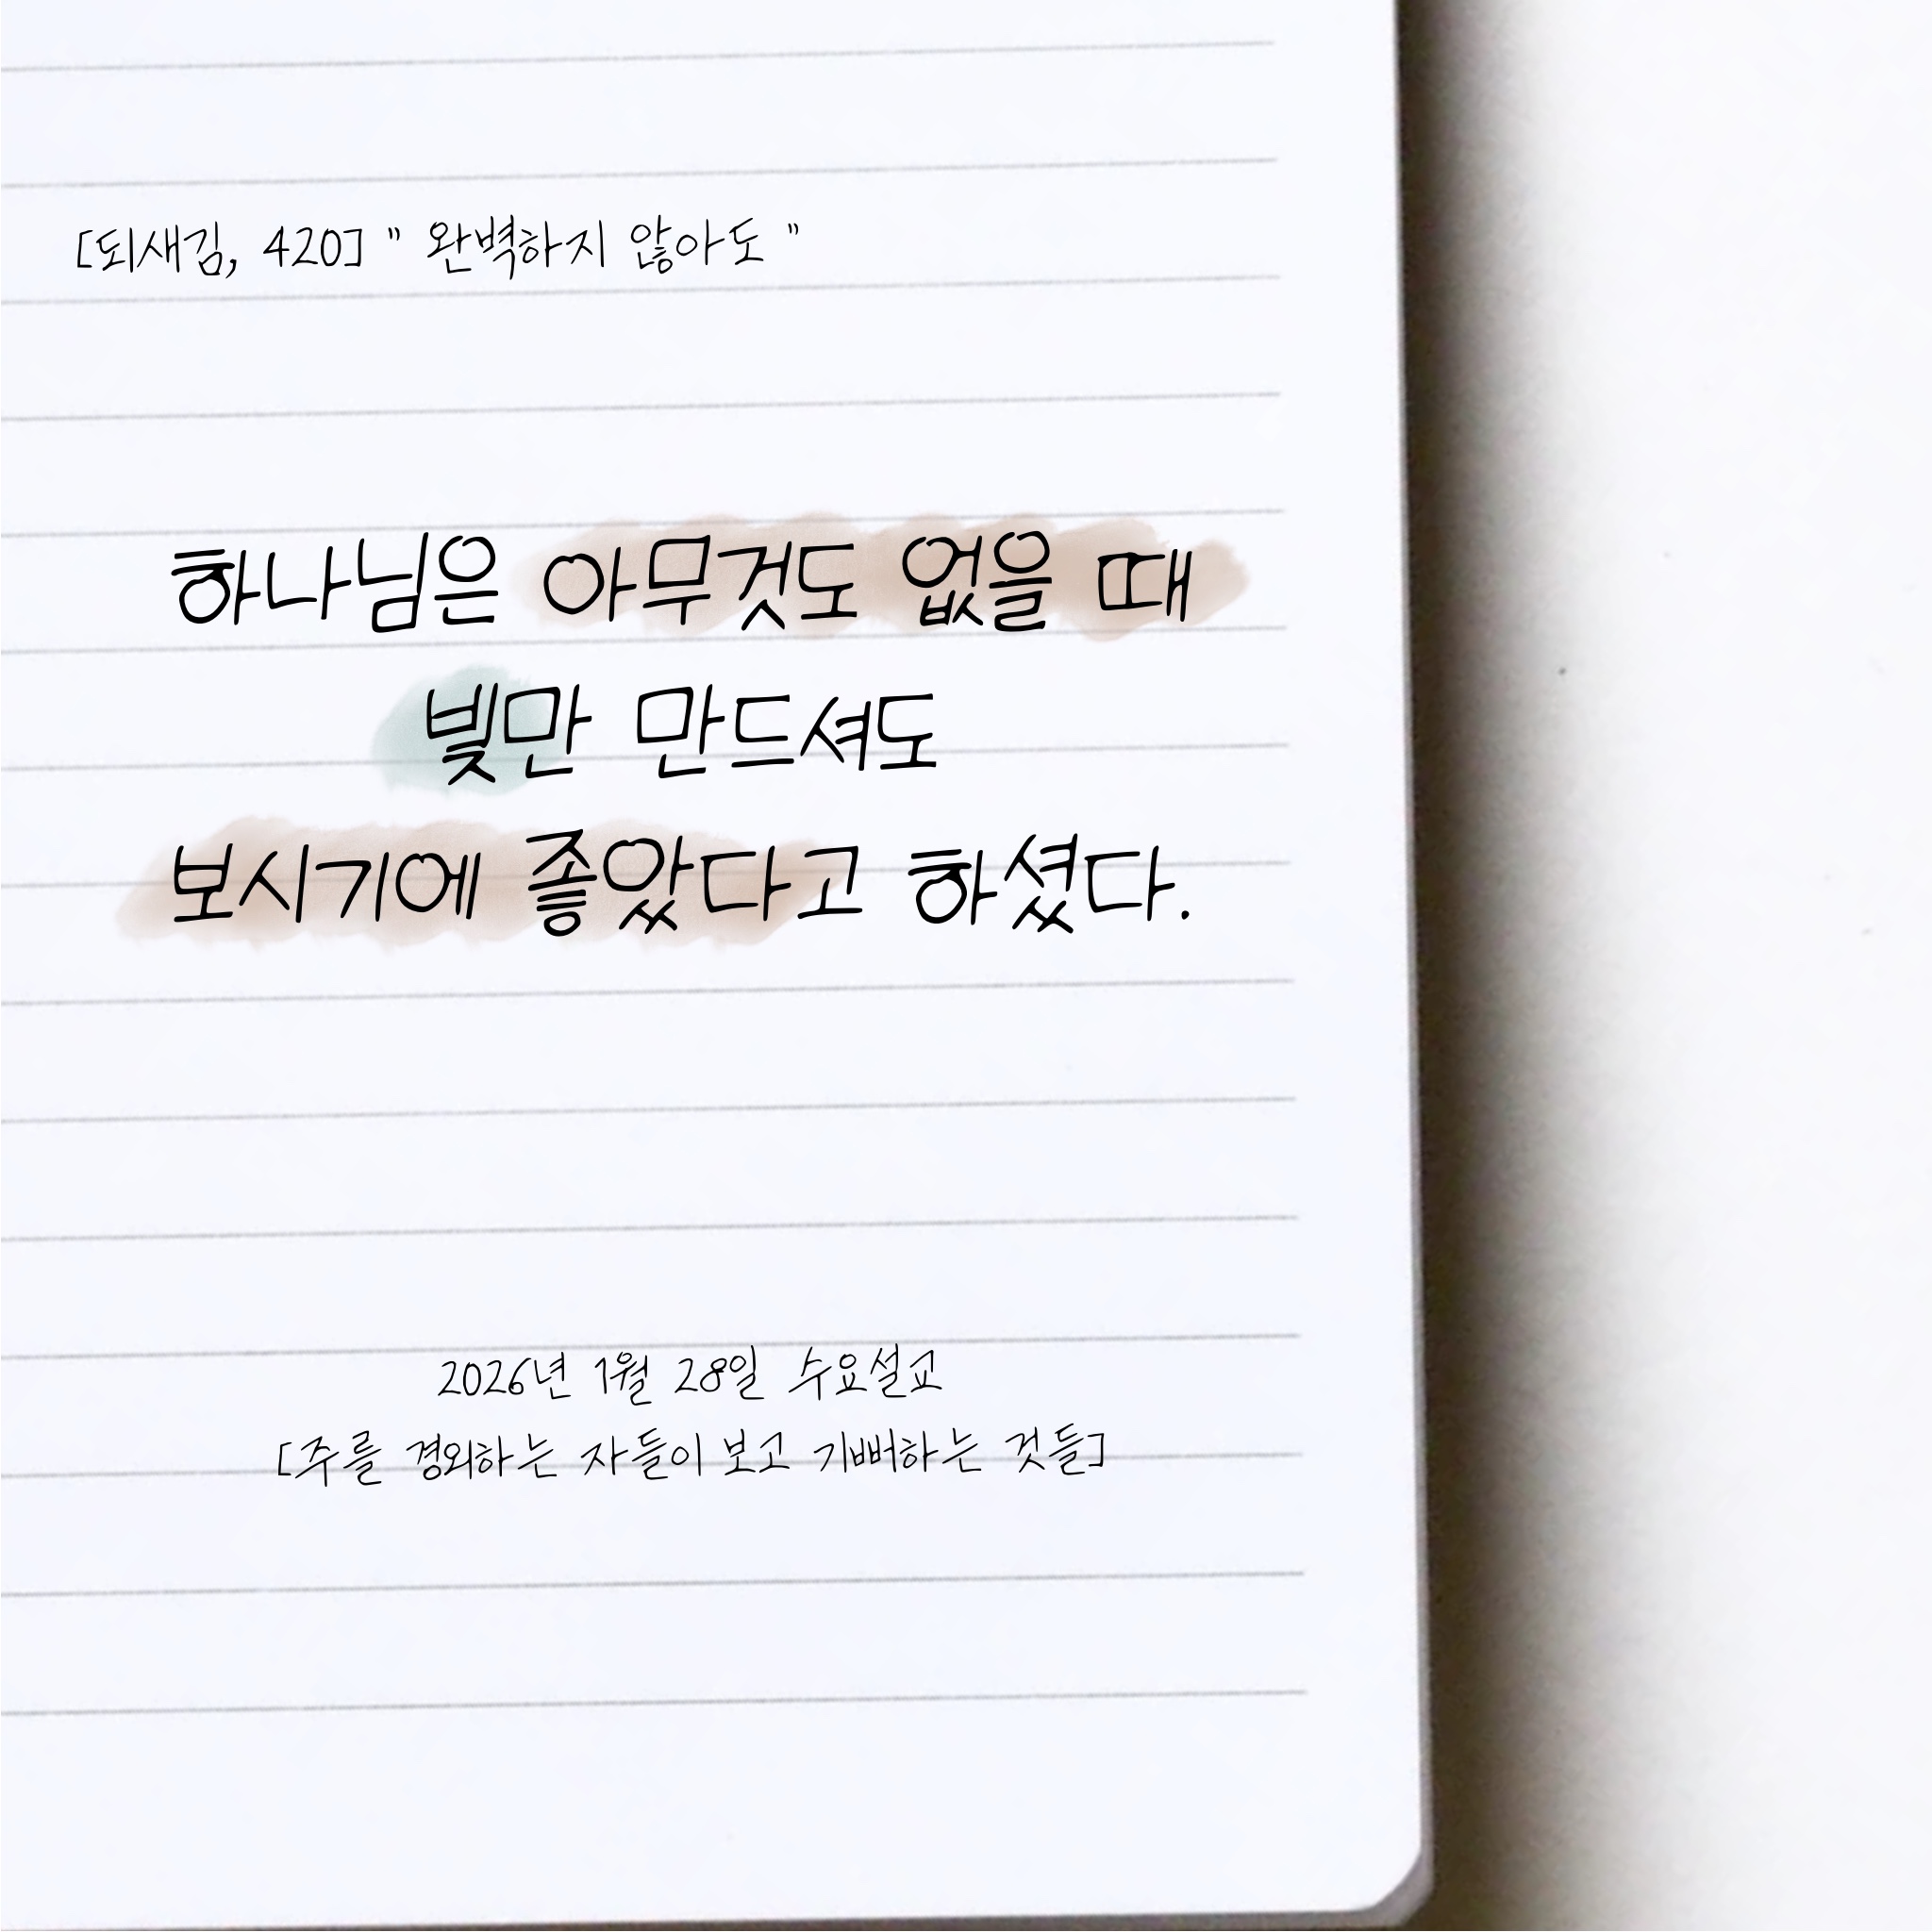 [되새김, 420] " 완벽하지 않아도 "
하나님은 아무것도 없을 때
빛만 만드셔도
보시기에 좋았다고 하셨다.
2026년 1월 28일 수요설교
[주를 경외하는 자들이 보고 기뻐하는 것들]